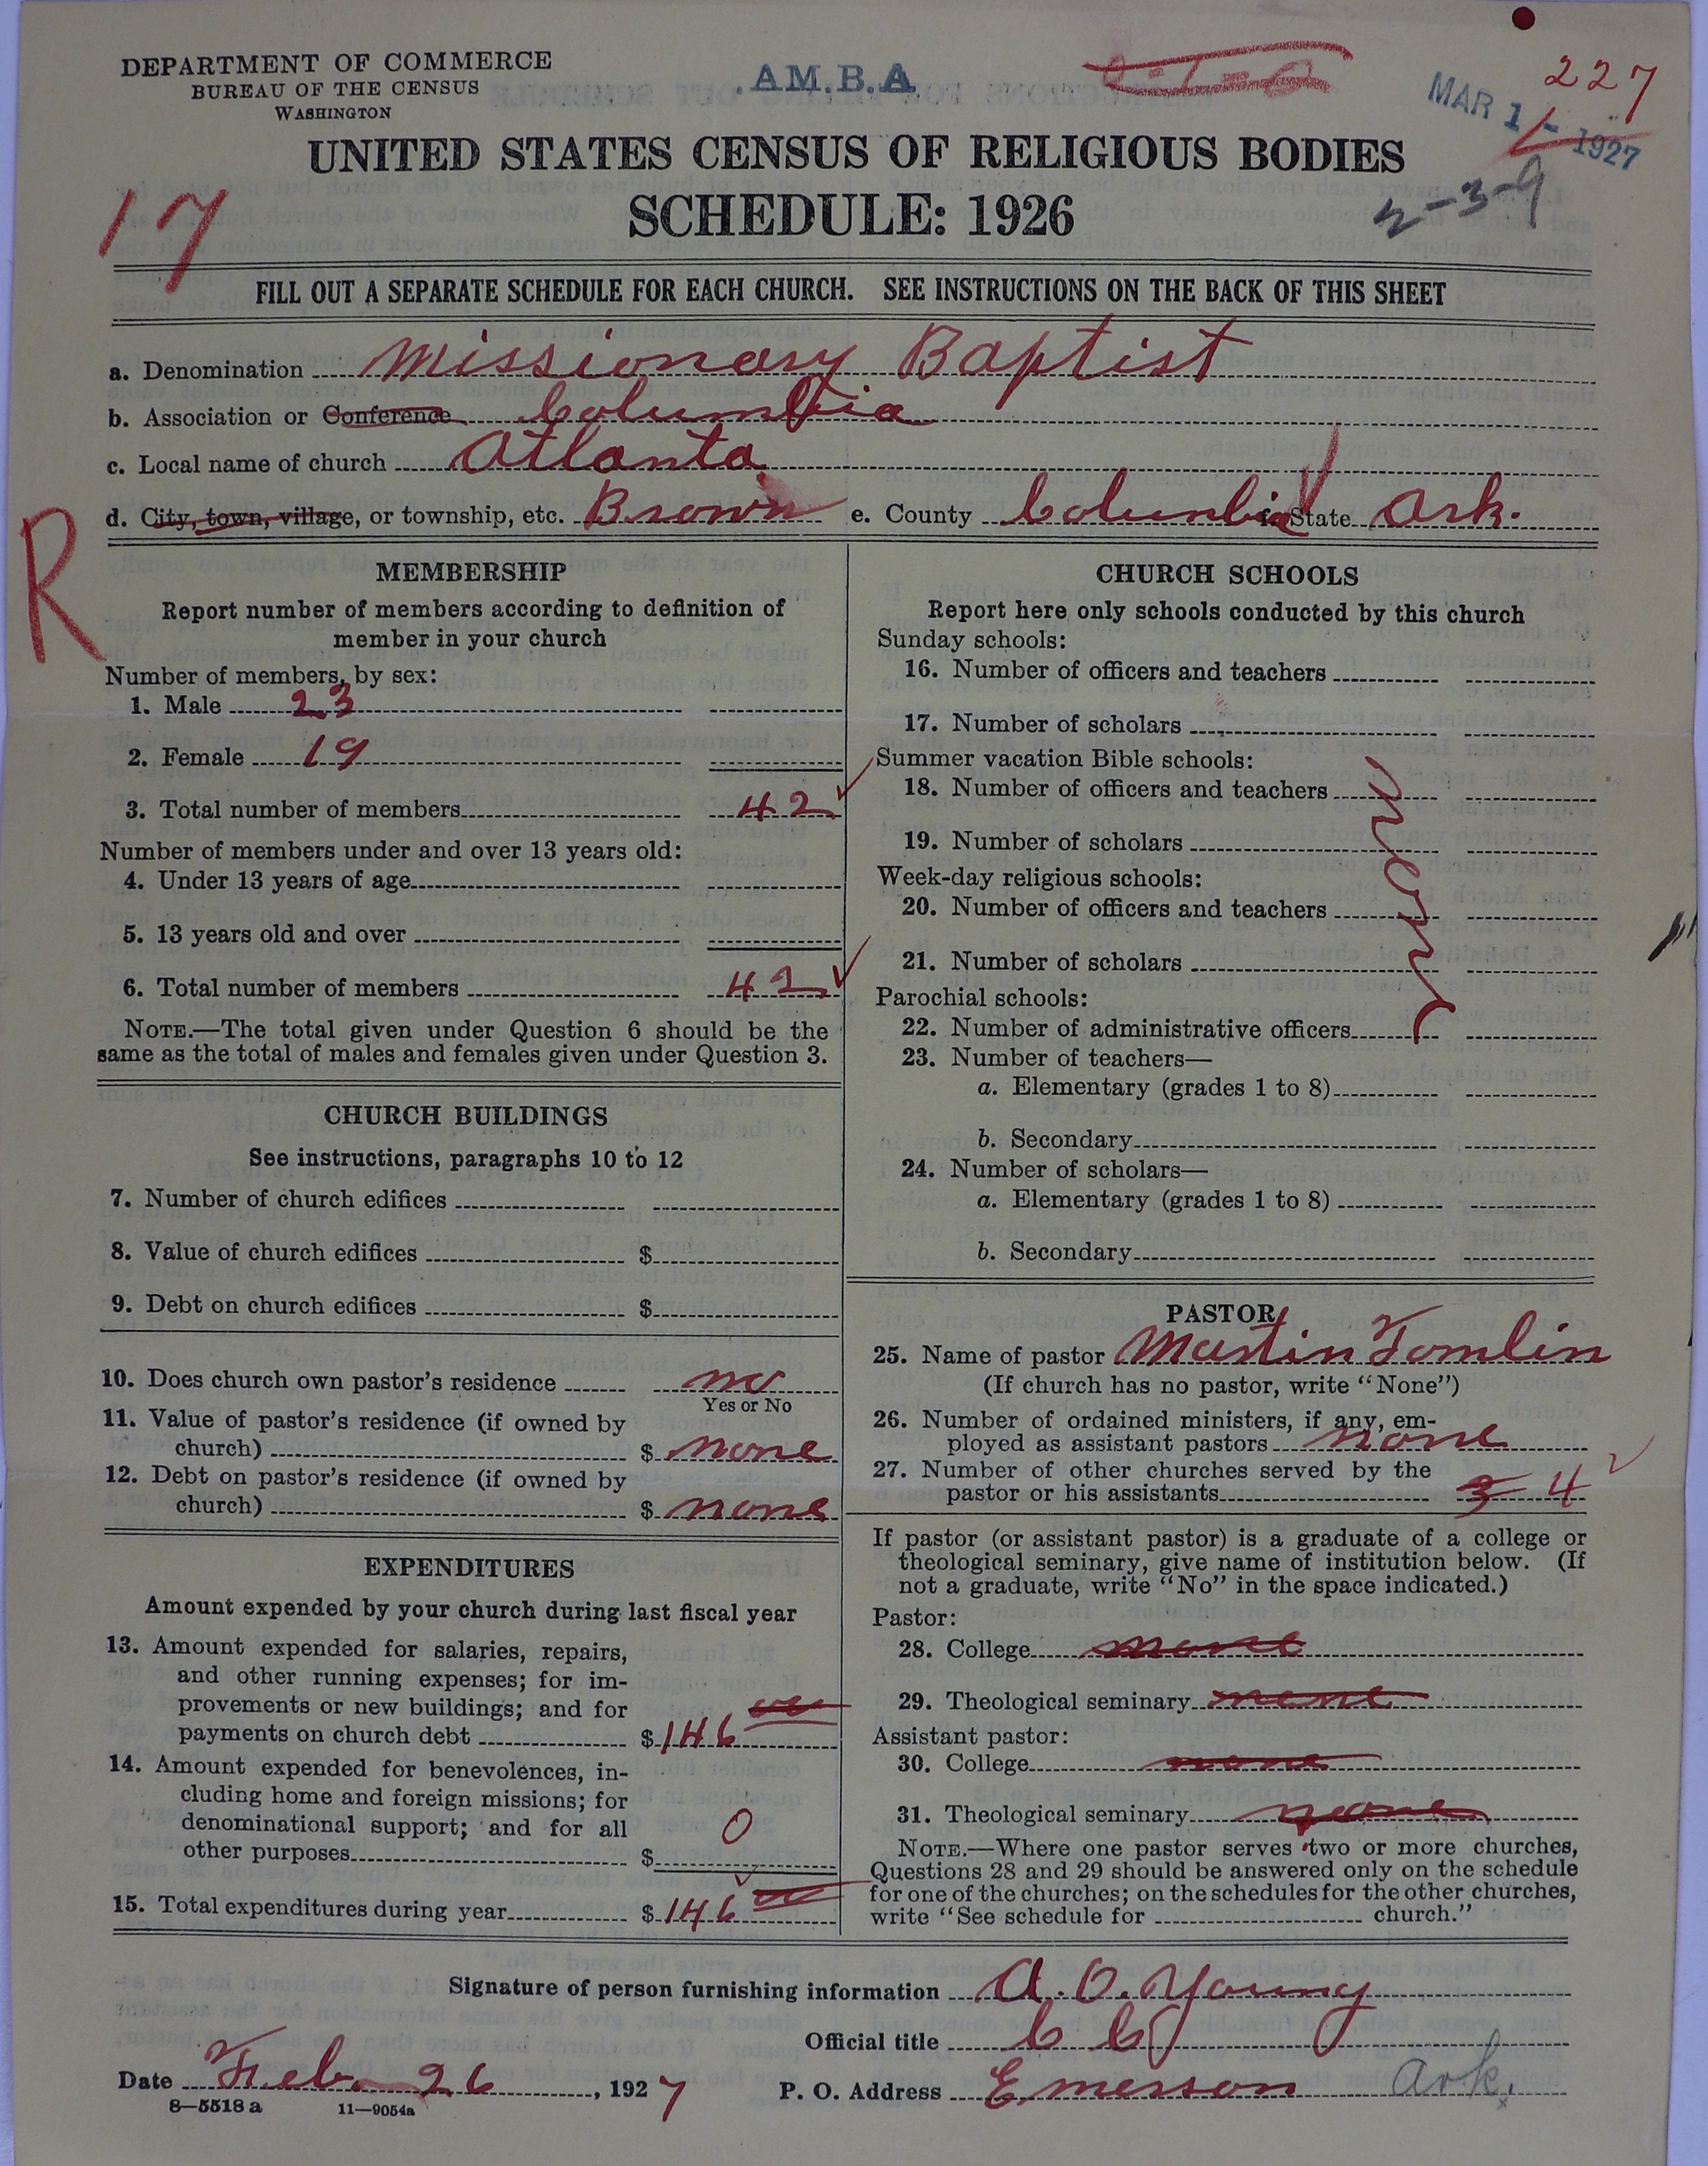 DEPARTMENT OF COMMERCE
BUREAU OF THE CENSUS
WASHINGTON
.AM.B.A
227
MAR 1 - 1927
2-3-9
UNITED STATES CENSUS OF RELIGIOUS BODIES
SCHEDULE: 1926
17
FILL OUT A SEPARATE SCHEDULE FOR EACH CHURCH. SEE INSTRUCTIONS ON THE BACK OF THIS SHEET
a. Denomination Missionary Baptist
b. Association or Conference Columbia
c. Local name of church Atlanta
d. City, town, village, or township, etc. Brown e. County Columbia f. State Ark.
R
MEMBERSHIP
Report number of members according to definition of
member in your church
Number of members, by sex:
1. Male 23
2. Female 19
3. Total number of members 42
Number of members under and over 13 years old:
4. Under 13 years of age
5. 13 years old and over
6. Total number of members 42
NOTE.—The total given under Question 6 should be the
same as the total of males and females given under Question 3.
CHURCH BUILDINGS
See instructions, paragraphs 10 to 12
7. Number of church edifices
8. Value of church edifices $
9. Debt on church edifices $
10. Does church own pastor's residence no
Yes or No
11. Value of pastor's residence (if owned by
church) $ none
12. Debt on pastor's residence (if owned by
church) $ none
EXPENDITURES
Amount expended by your church during last fiscal year
13. Amount expended for salaries, repairs,
and other running expenses; for im-
provements or new buildings; and for
payments on church debt $ 146 00
14. Amount expended for benevolences, in-
cluding home and foreign missions; for
denominational support; and for all
other purposes $ 0
15. Total expenditures during year $ 146 00
CHURCH SCHOOLS
Report here only schools conducted by this church
Sunday schools:
16. Number of officers and teachers
17. Number of scholars
Summer vacation Bible schools:
18. Number of officers and teachers
19. Number of scholars
none
Week-day religious schools:
20. Number of officers and teachers
21. Number of scholars
Parochial schools:
22. Number of administrative officers
23. Number of teachers—
a. Elementary (grades 1 to 8)
b. Secondary
24. Number of scholars—
a. Elementary (grades 1 to 8)
b. Secondary
PASTOR
25. Name of pastor Martin Tomlin
(If church has no pastor, write "None")
26. Number of ordained ministers, if any, em-
ployed as assistant pastors none
27. Number of other churches served by the
pastor or his assistants 3 4
If pastor (or assistant pastor) is a graduate of a college or
theological seminary, give name of institution below. (If
not a graduate, write "No" in the space indicated.)
Pastor:
28. College none
29. Theological seminary none
Assistant pastor:
30. College none
31. Theological seminary none
NOTE.—Where one pastor serves two or more churches,
Questions 28 and 29 should be answered only on the schedule
for one of the churches; on the schedules for the other churches,
write "See schedule for church."
Signature of person furnishing information A. O. Young
Official title C C
Date Feb. 26, 1927 P. O. Address Emerson Ark.
8—5518 a 11—9054a